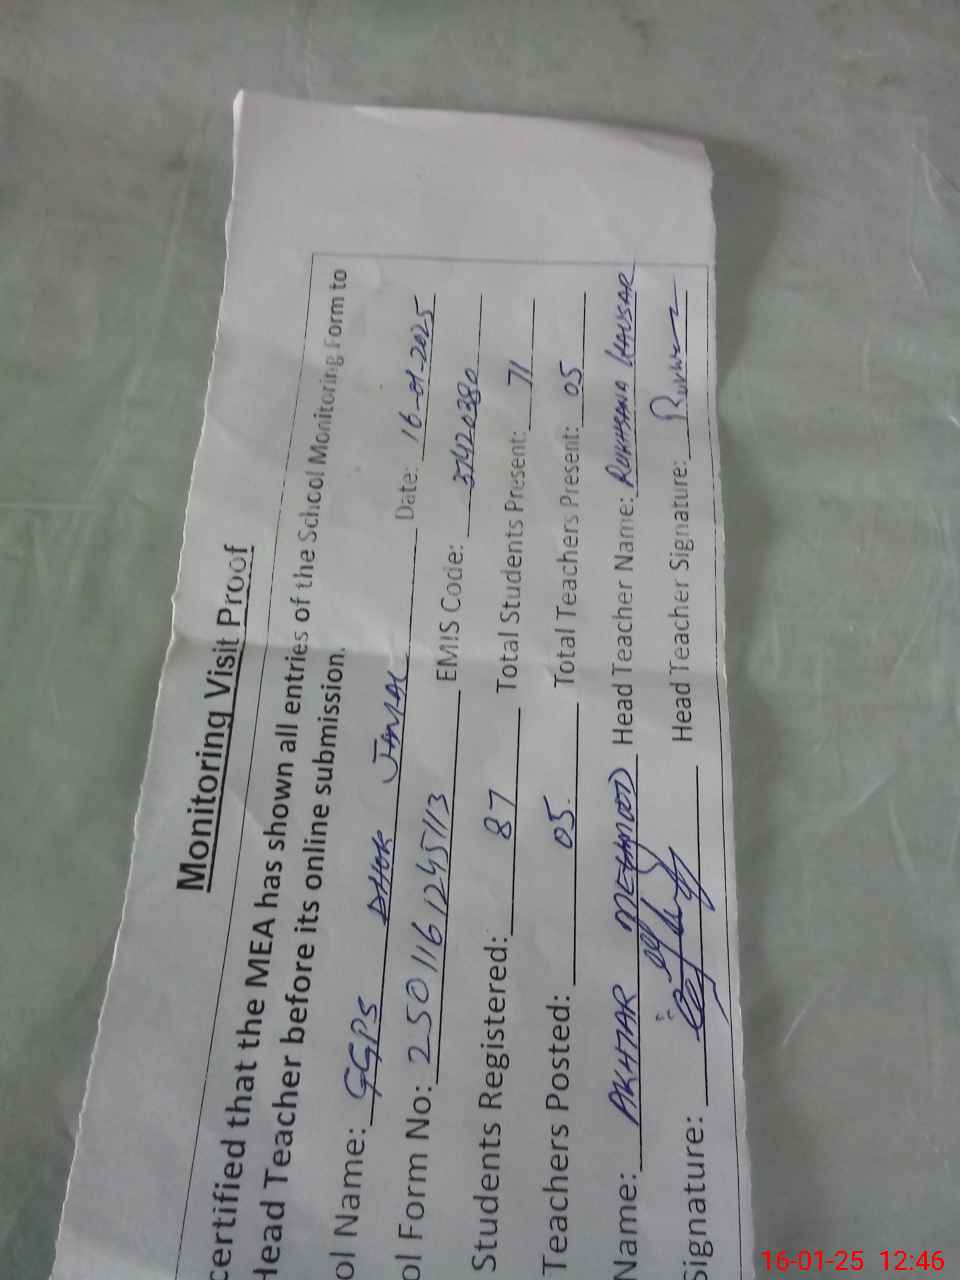 Monitoring Visit Proof
certified that the MEA has shown all entries of the School Monitoring Form to
Head Teacher before its online submission.
ol Name: GGPS DHOK JAMAL Date: 16-01-2025
ol Form No: 2501161245113 EMIS Code: 37420380
Students Registered: 87 Total Students Present: 71
Teachers Posted: 05. Total Teachers Present: 05
Name: AKHTAR MEHMOOD Head Teacher Name: RUKHSANA KAUSAR
Signature: Head Teacher Signature:
16-01-25 12:46